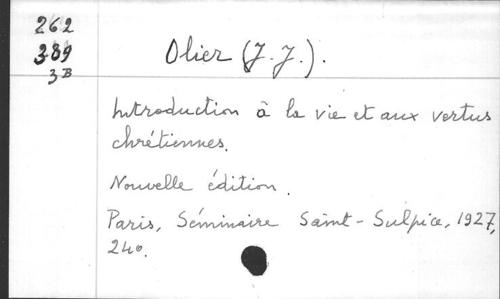 262
389
3B
Olier (J. J.).
Introduction à la vie et aux vertus
chrétiennes.
Nouvelle édition.
Paris, Séminaire Saint-Sulpice, 1927,
24o.